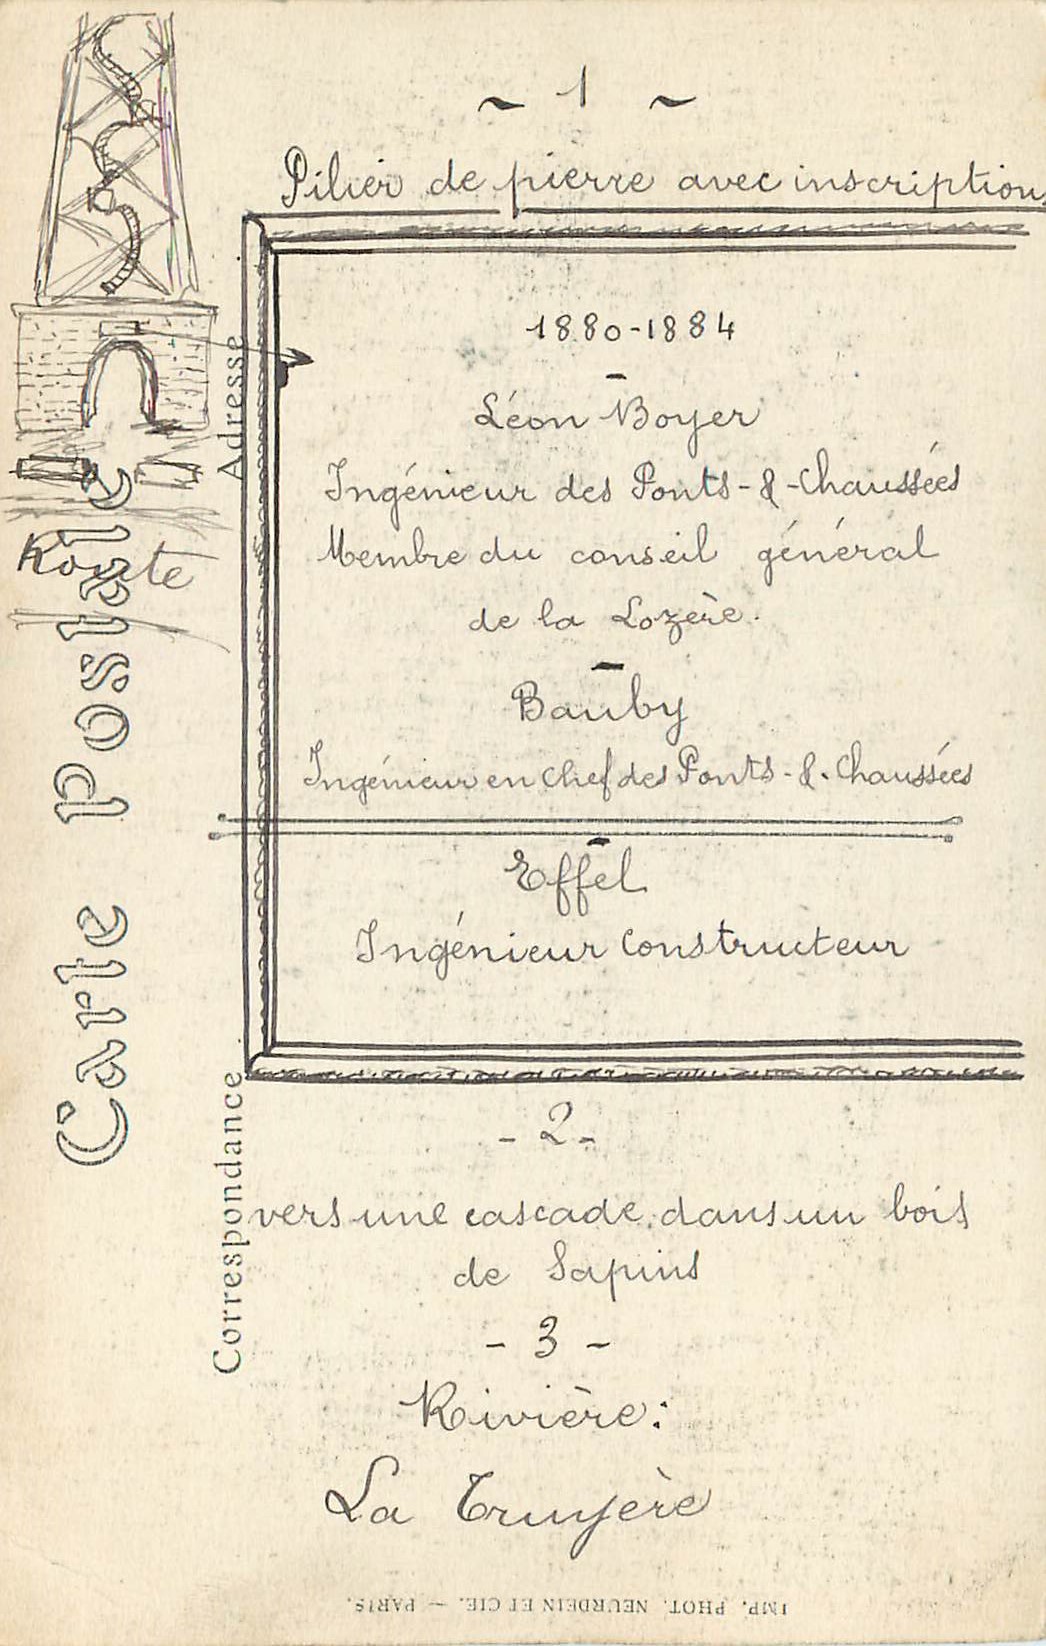 ~ 1 ~
Pilier de pierre avec inscriptions
1880-1884
Léon Boyer
Ingénieur des Ponts-&-Chaussées
Membre du conseil général
de la Lozère.
Bauby
Ingénieur en Chef des Ponts-&-Chaussées
Effel
Ingénieur Constructeur
- 2 -
vers une cascade, dans un bois
de Sapins
- 3 -
Rivière:
La Truyère
Route
Carte Postale
Adresse
Correspondance
IMP. PHOT. NEURDEIN ET CIE. — PARIS.